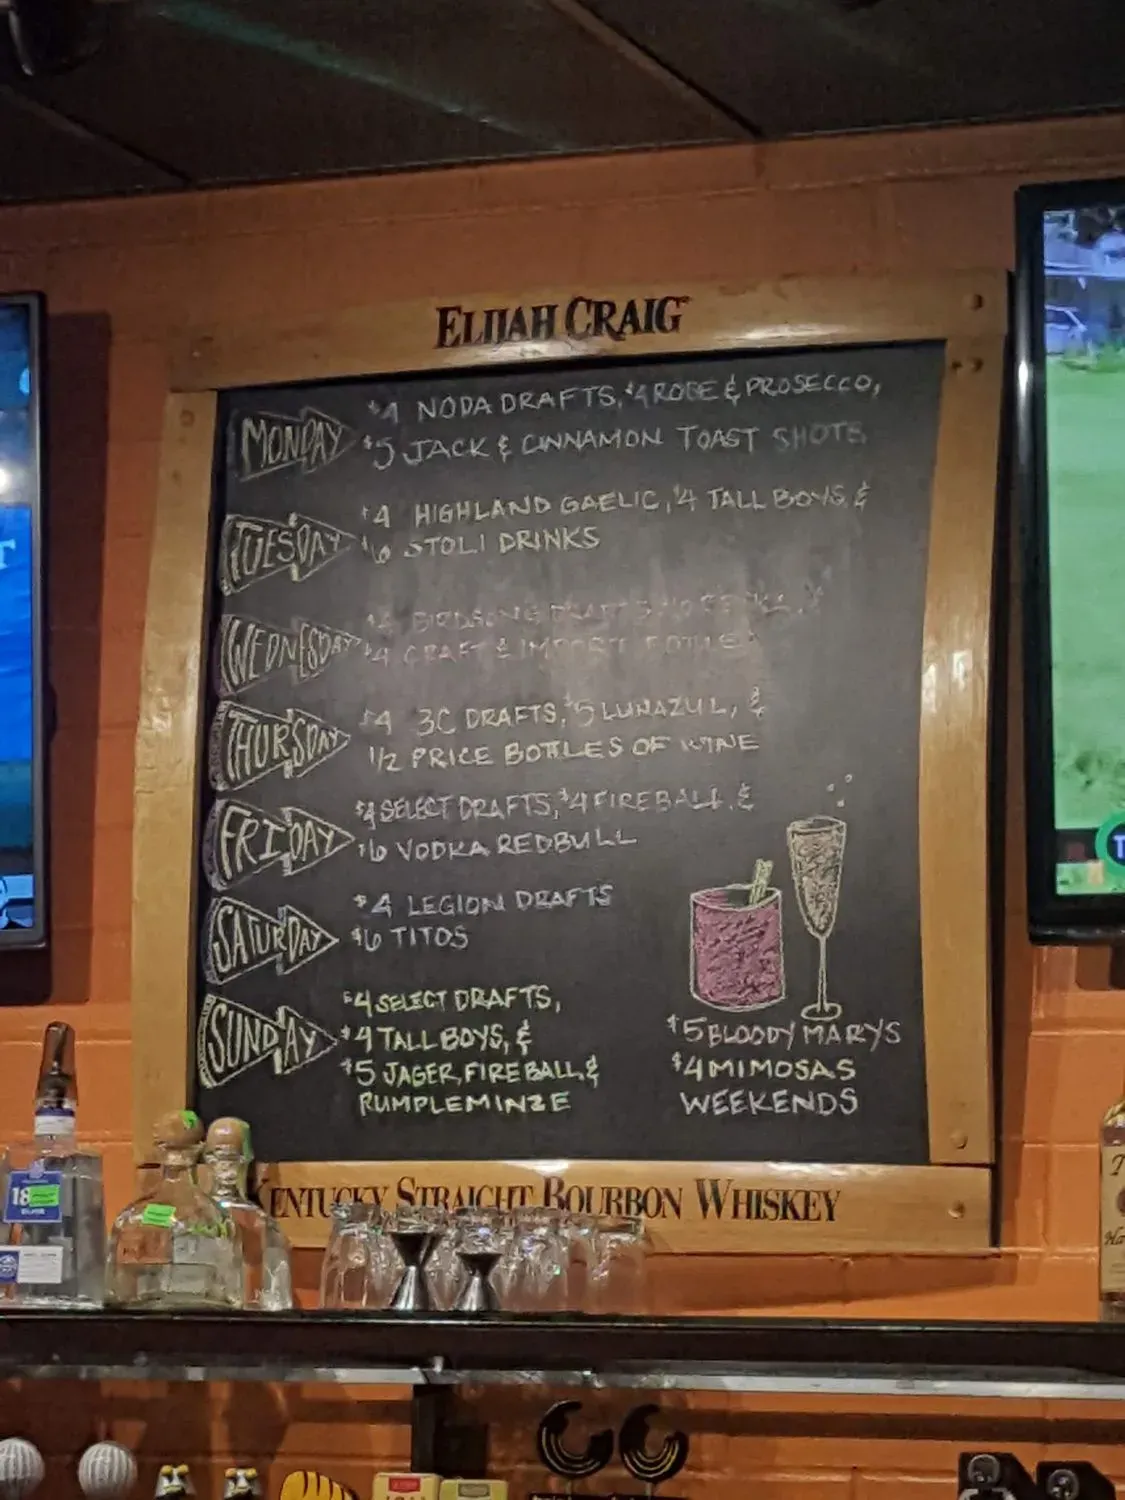 ELIJAH CRAIG
MONDAY
$4 NODA DRAFTS, $4 ROSE & PROSECCO,
$5 JACK & CINNAMON TOAST SHOTS
TUESDAY
$4 HIGHLAND GAELIC, $4 TALL BOYS, &
$6 STOLI DRINKS
WEDNESDAY
BIRDSONG DRAFT
$4 CRAFT & IMPORT BOTTLES
THURSDAY
$4 3C DRAFTS, $5 LUNAZUL, &
1/2 PRICE BOTTLES OF WINE
FRIDAY
$4 SELECT DRAFTS, $4 FIREBALL, &
$6 VODKA REDBULL
SATURDAY
$4 LEGION DRAFTS
$6 TITOS
SUNDAY
$4 SELECT DRAFTS,
$4 TALL BOYS, &
$5 JAGER, FIREBALL, &
RUMPLEMINZE
$5 BLOODY MARYS
$4 MIMOSAS
WEEKENDS
KENTUCKY STRAIGHT BOURBON WHISKEY
18